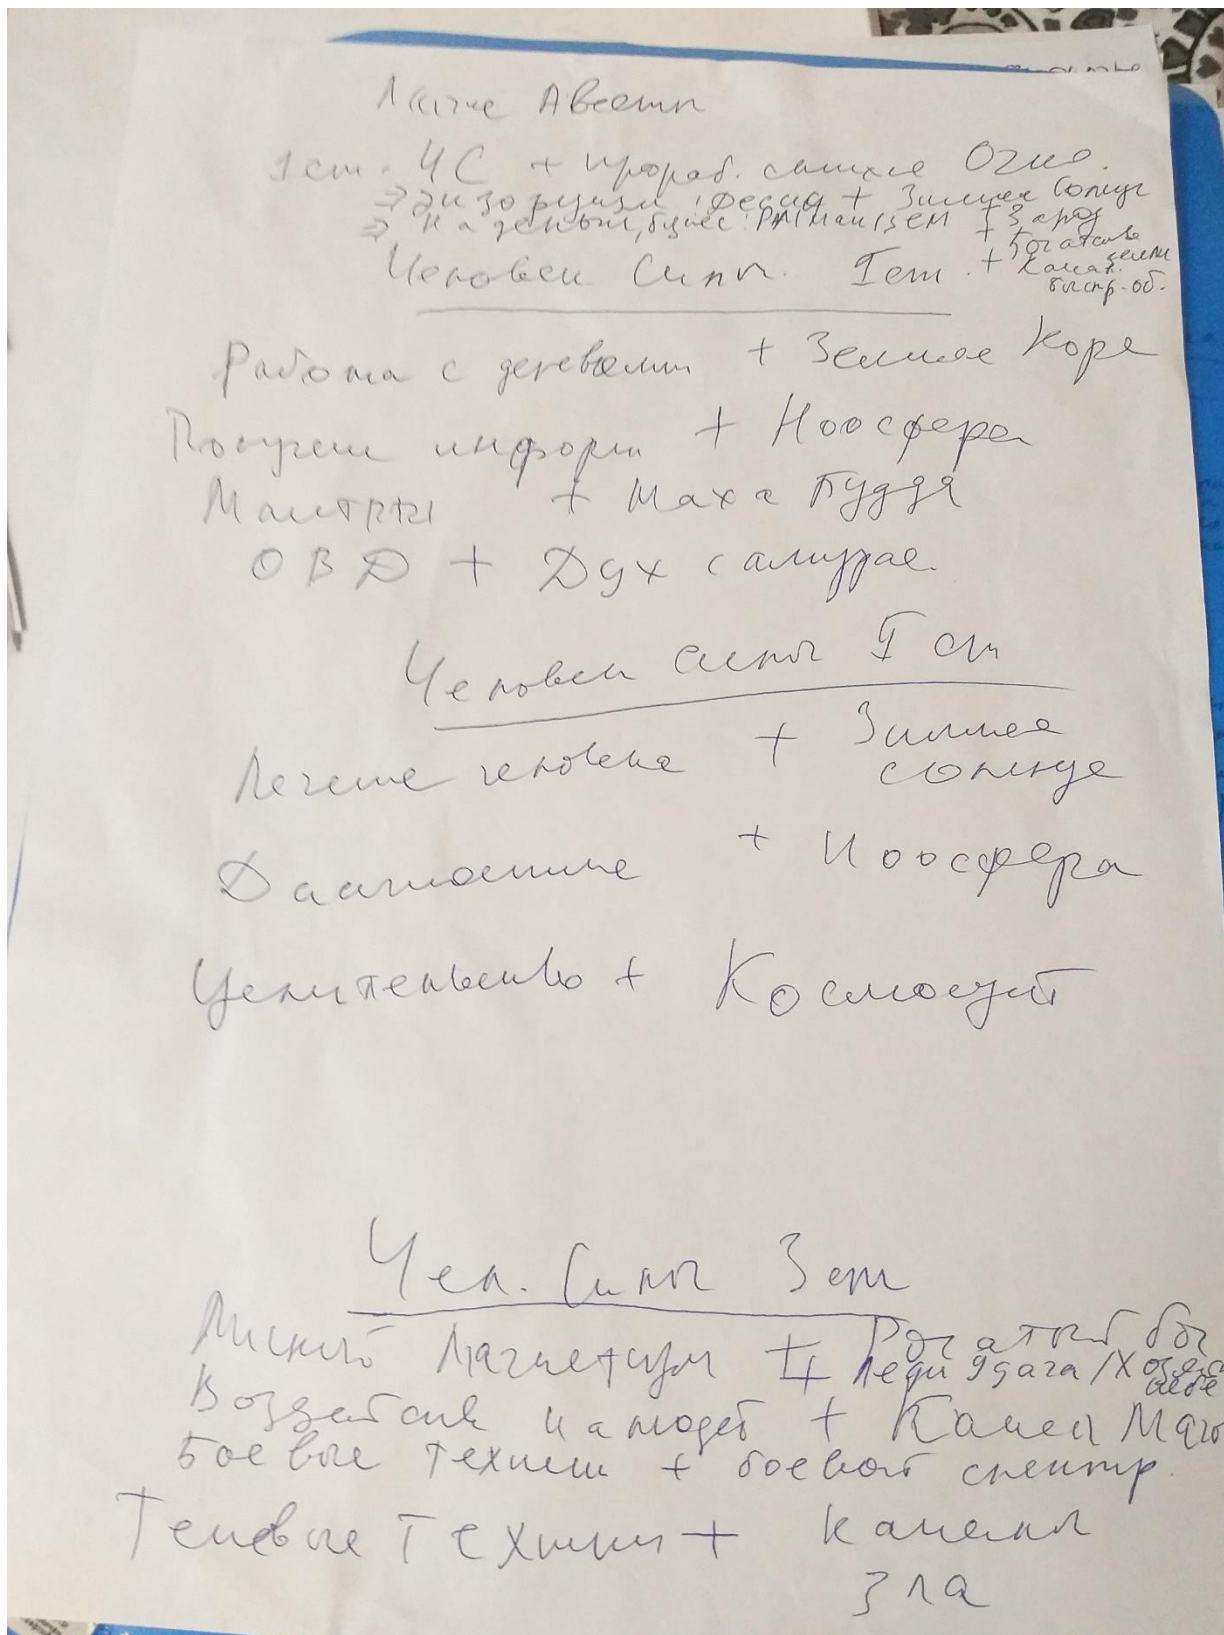 Авесты
1 ст. ЧС + прораб. стихия Огня.
+ Зимнее Солнце
На деньги, бизнес: + Заряд
+ Богатство земли
Человек Силы I ст. + Канал быстр. об.
Работа с деревьями + Земное Ядро
Получен информ + Ноосфера
Мантры + Маха Буддя
ОВД + Дух самурая
Человек силы II ст
Лечение человека + Зимнее
солнце
Диагностика + Ноосфера
Целительство + Космоцит
Чел. Силы 3 ст
Личный Магнетизм + Рогатый бог
+ Леди Удача /
Воздействие на людей + Канал Маго
Боевые техники + боевой спектр
Теневые Техники + каналы
Зла